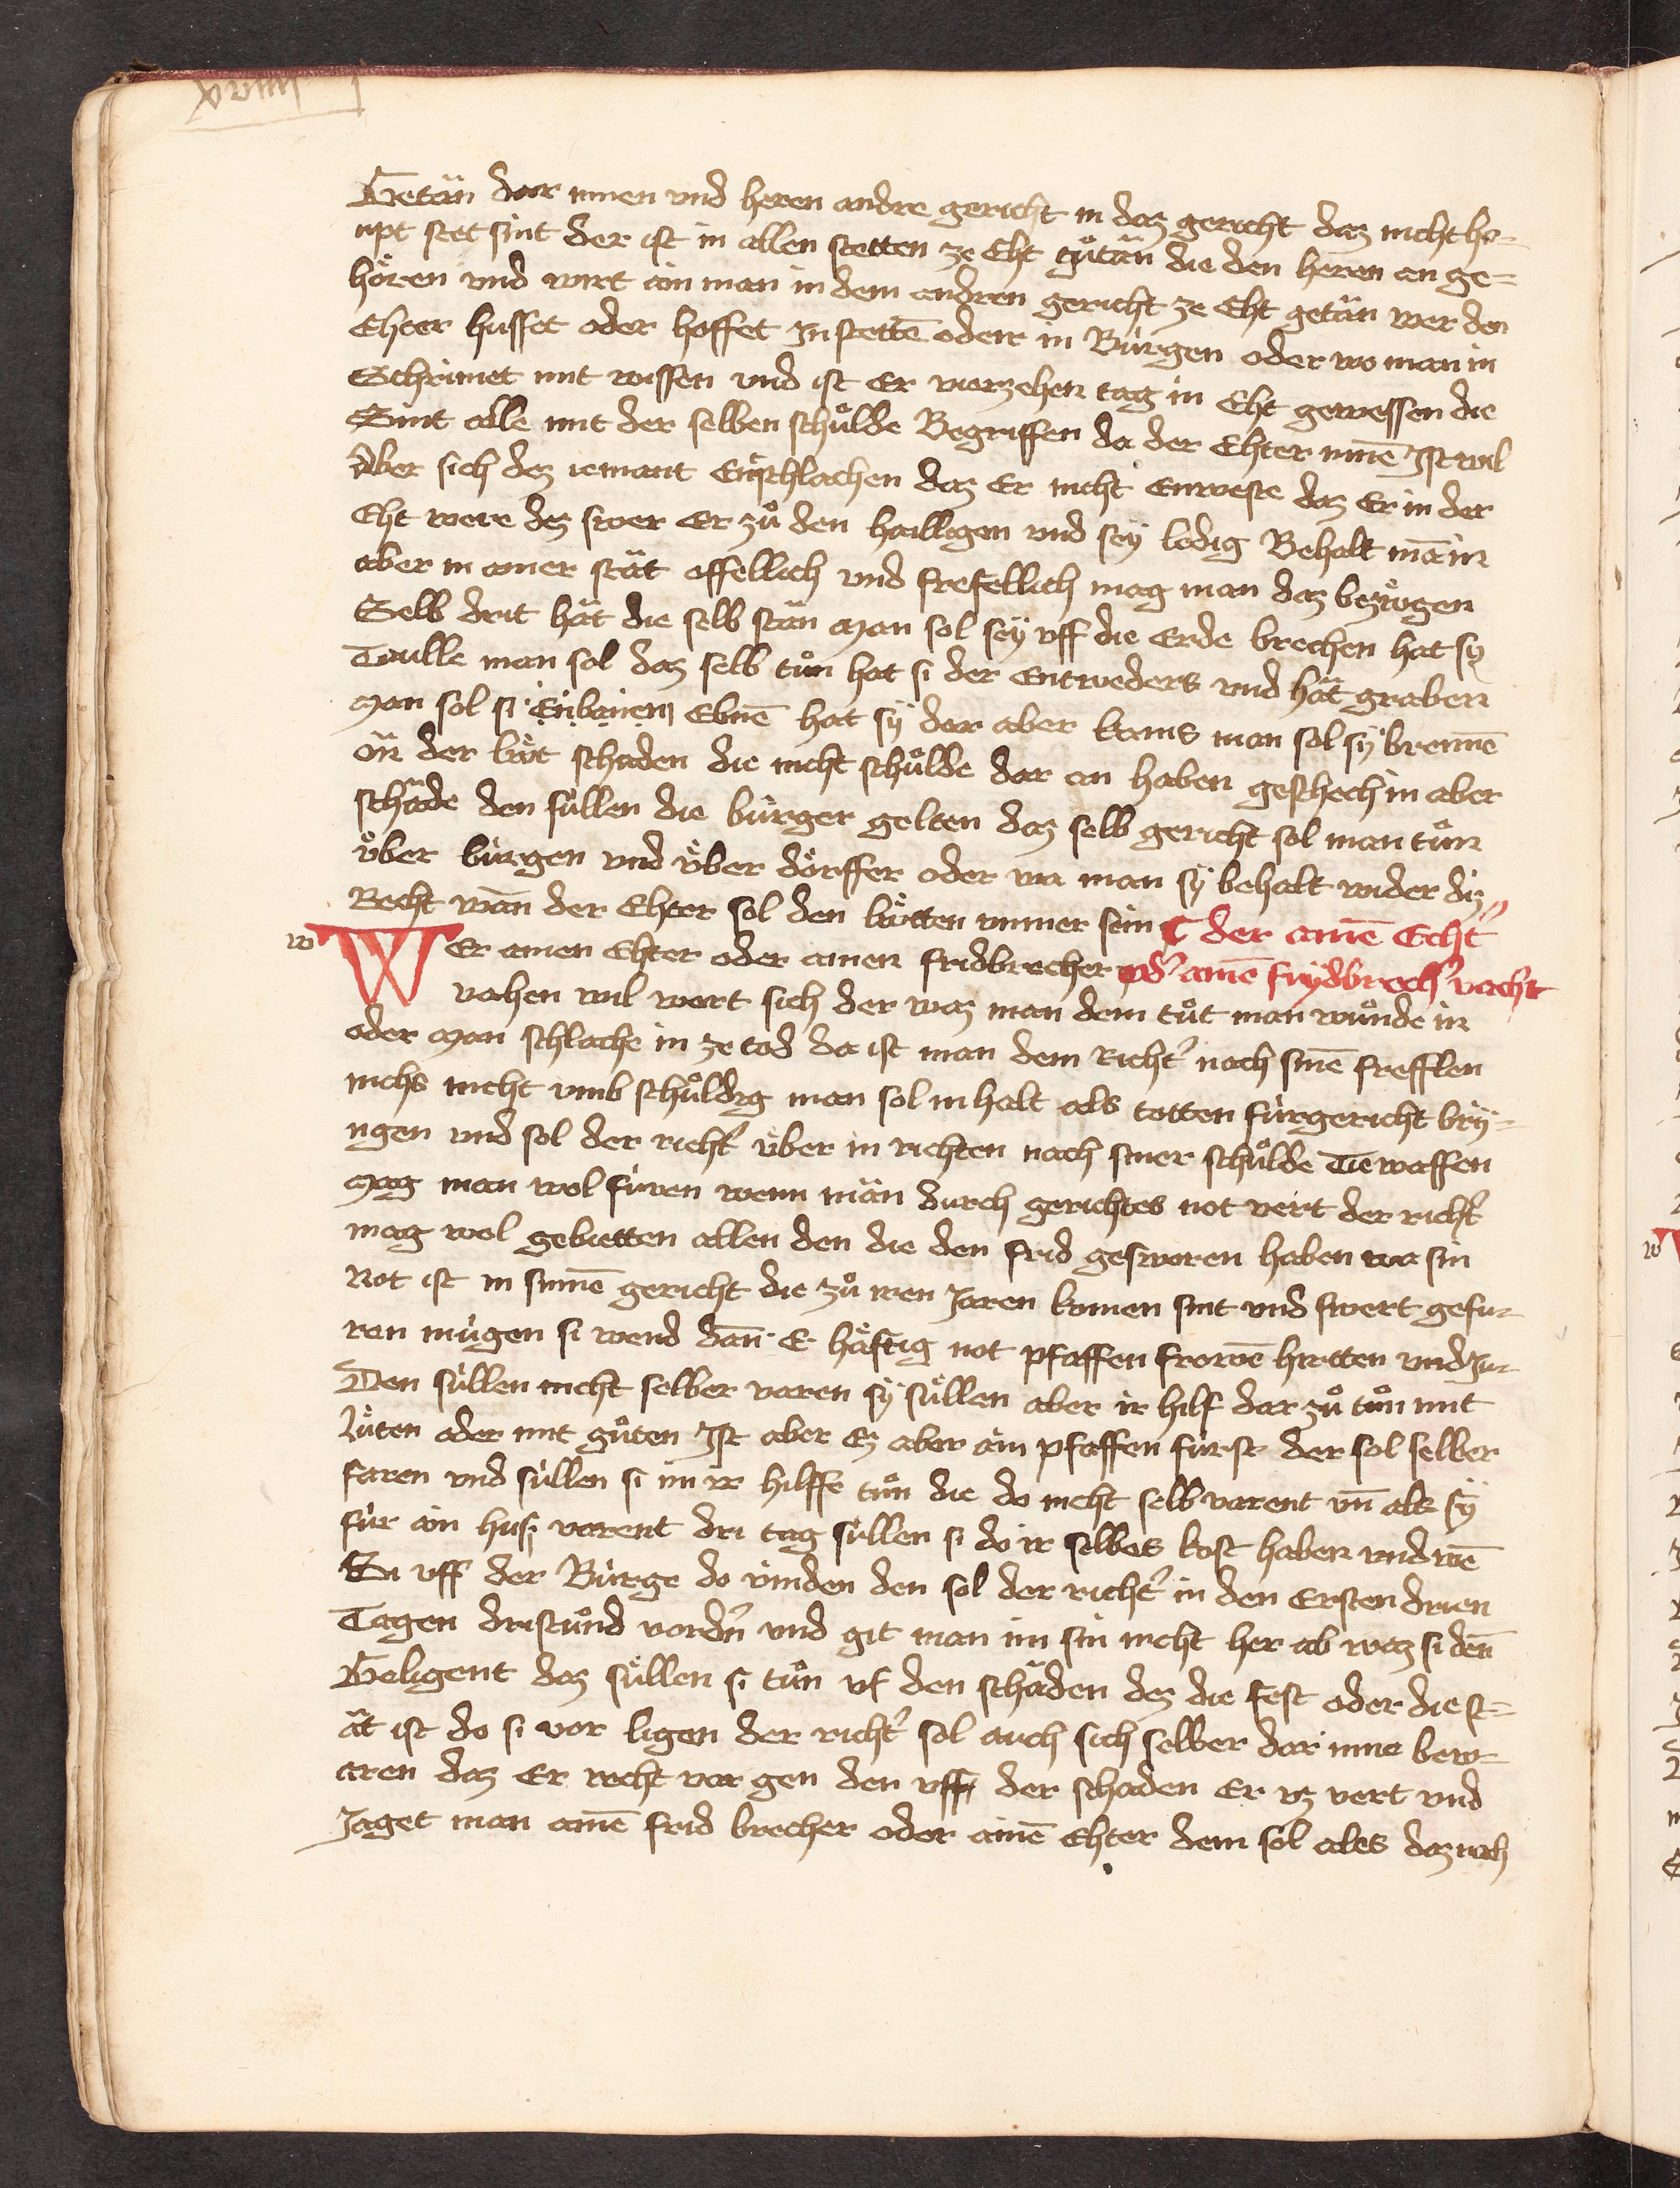 Getän dar innen vnd heren andre gericht in daz gericht daz nicht ho-
upt stet sint der ist in allen stetten ze Eht gůtän die den heren an ge=
hören vnd wirt ain man in dem andren gericht ze Eht getän wer den
Ehter husset oder hoffet In stettē oder in Bürgen oder wo man in
Schrimet mit wissen vnd ist Er vierzehen tag in Eht gewessen die
Sint alle mit der selben schůlde Begriffen da der Ehter innē Ist wil
Aber sich dez iemant Entschlachen daz Er nicht Enweste daz Er in der
Eht were dez swer Er zů den hailligen vnd sey ledig Behalt mā in
aber in ainer stät offellich vnd frefellich mag man daz bezwögen
Selb drit hät die selb stän Man sol sey vff die Erde brechen hat sy
Tülle man sol daz selb tůn hat si der Entweders vnd hät graben
Man sol si Enbinen Ebnē hat sy dar aber kains man sol sy brennē
än der lüt schaden die nicht schůlde dar an haben geschech in aber
schäde den süllen die bürger gelten daz selb gericht sol man tůn
über bürgen vnd über dörffer oder wa man sy behalt wider diz
Recht wān der Ehter sol den lütten vnmer sein ¶ der ainē Echt'
w
WEr ainen Ehter oder ainen fridbrecher od' ainē frydbrech' vacht
vahen wil wert sich der waz man dem tůt man wůnde in
oder Man schlache in ze tod da ist man dem Richt' nach sinē frefflen
nichs nicht vmb schůldig man sol in halt als totten für gericht bry=
ngen vnd sol der richt' über in richten nach siner schůlde Die waffen
Mag man wol füren wenn män durch gerichtes not vert der richt'
mag wol gebietten allen den die den frid gesworen haben wa sin
Not ist in sinnē gericht die zů iren Jaren komen sint vnd swert gefü-
ren mügen si wend dän E häftig not pfaffen frowē hirtten vnd Ju-
Den süllen nicht selber varen sy süllen aber ir hilf dar zů tůn mit
Lüten oder mit gůten Ist aber Ez aber ain pfaffen fürst der sol selber
faren vnd süllen si im ir hilffe tůn die do nicht selb varent vn̄ als sy
für ain hus varent dri tag süllen si do ir selbes kost haben vnd wē
Si vff der Bürge do vinden den sol der richt' in den Ersten drien
Tagen dristůnd vordn̄ vnd git man im sin nicht her ab waz si den̄
Beligent daz süllen si tůn vf den schäden dez die fest oder die st=
ät ist do si vor ligen der richt' sol auch sich selber dar inne bew-
aren daz Er recht var gen den vff der schaden Er vz vert vnd
Jaget man ainē frid brecher oder ainē Ehter dem sol ales daz nach